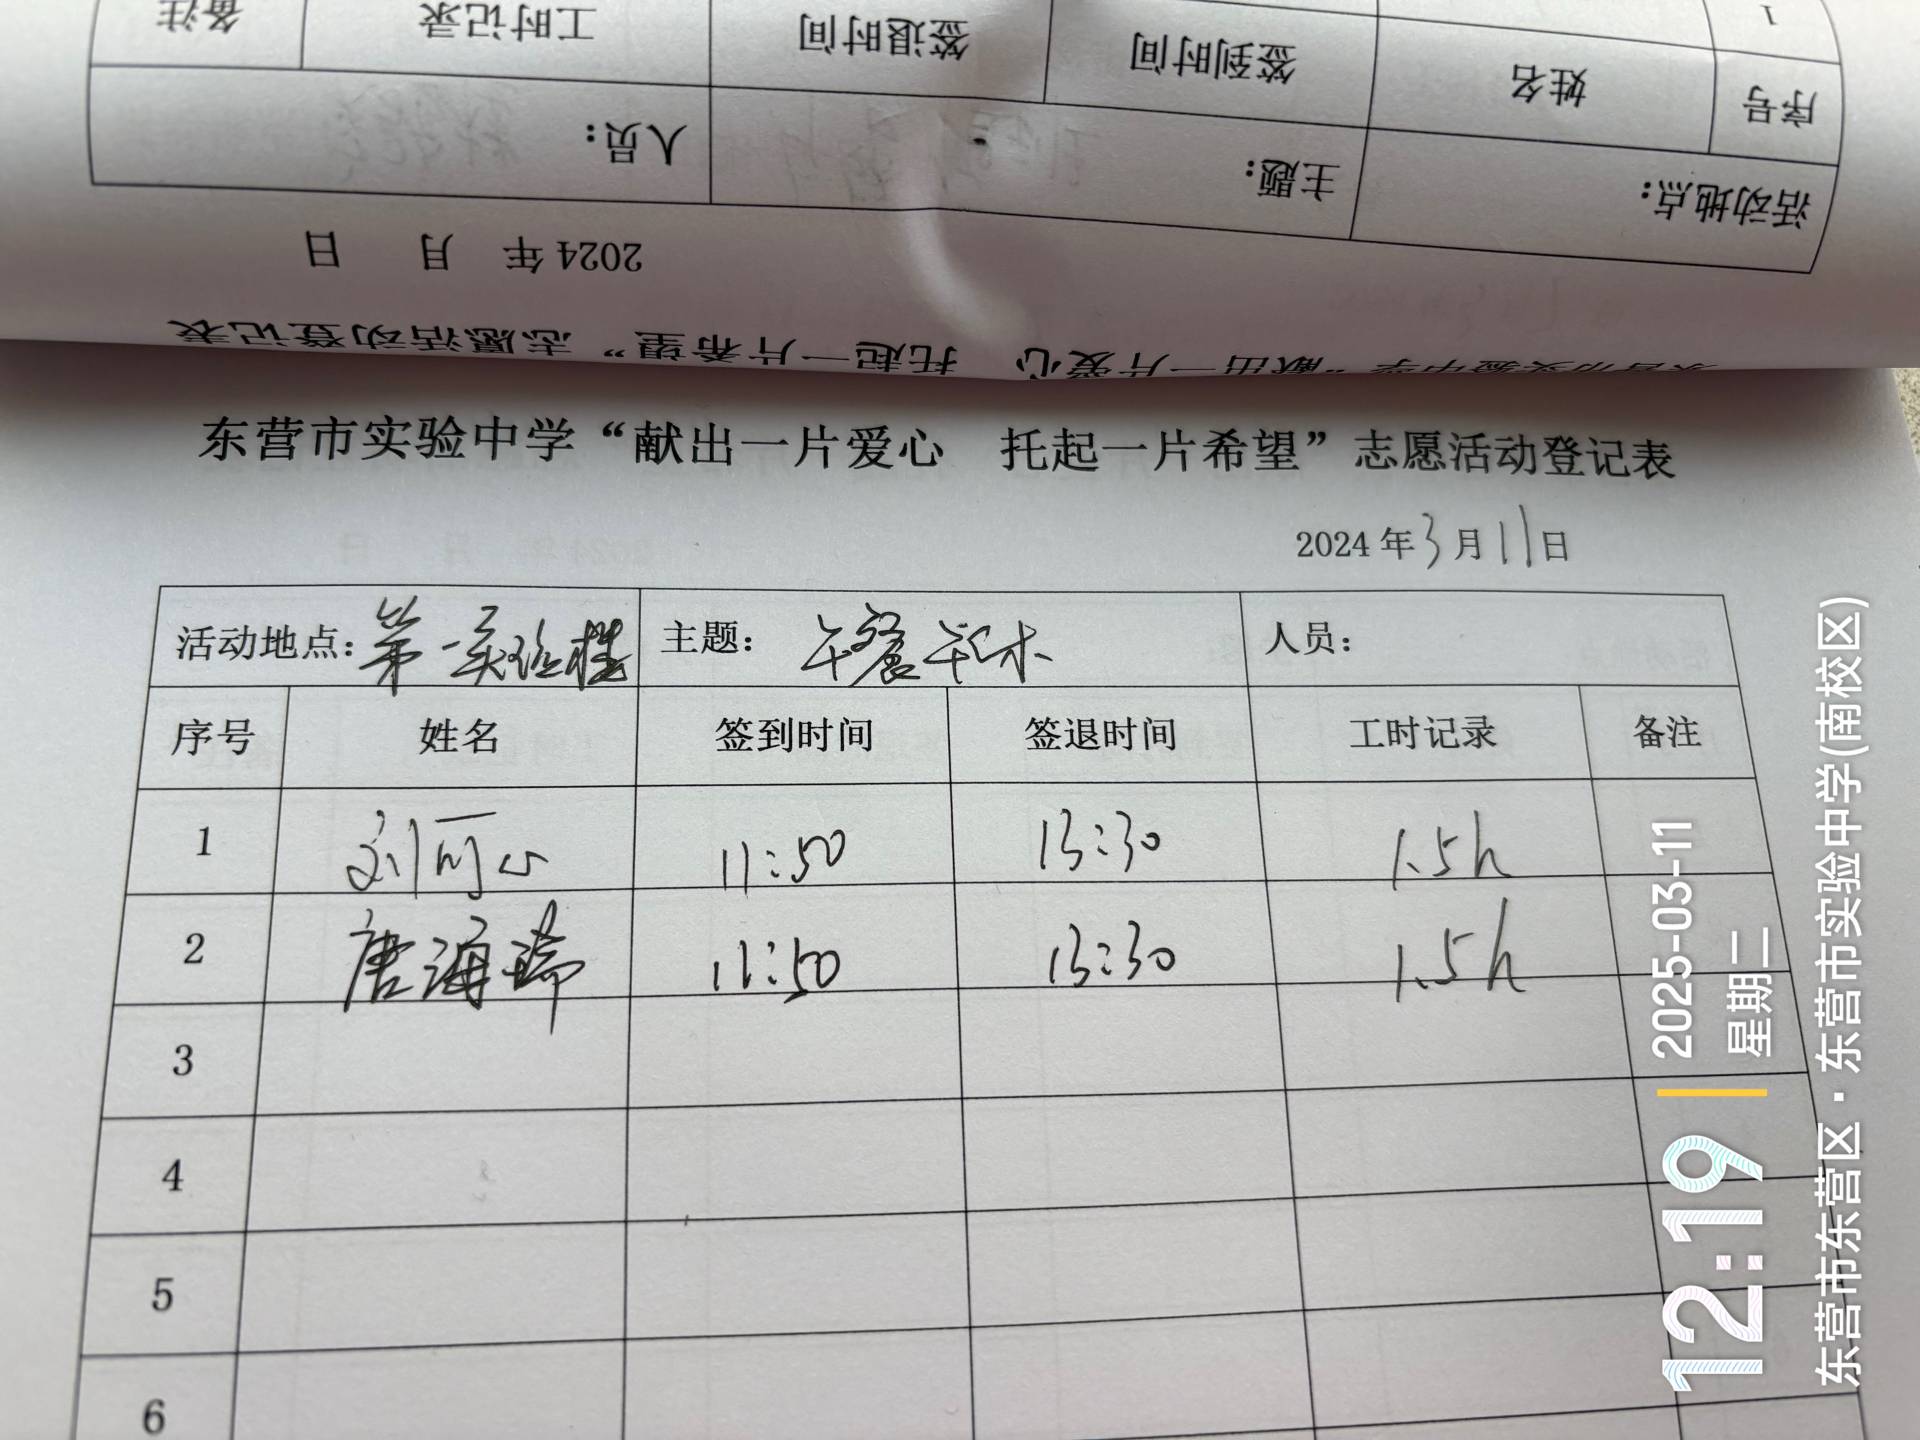 备注 工时记录 签退时间 签到时间 姓名 序号 1
人员： 主题： 活动地点：
2024 年 月 日
东营市实验中学“献出一片爱心 托起一片希望”志愿活动登记表
东营市实验中学“献出一片爱心 托起一片希望”志愿活动登记表
2024 年 3 月 11 日
活动地点：第一实验楼 主题：午餐午休 人员：
序号 姓名 签到时间 签退时间 工时记录 备注
1 刘可心 11:50 13:30 1.5h
2 唐海瑞 11:50 13:30 1.5h
3
4
5
6
12:19
2025-03-11
星期二
东营市东营区·东营市实验中学(南校区)